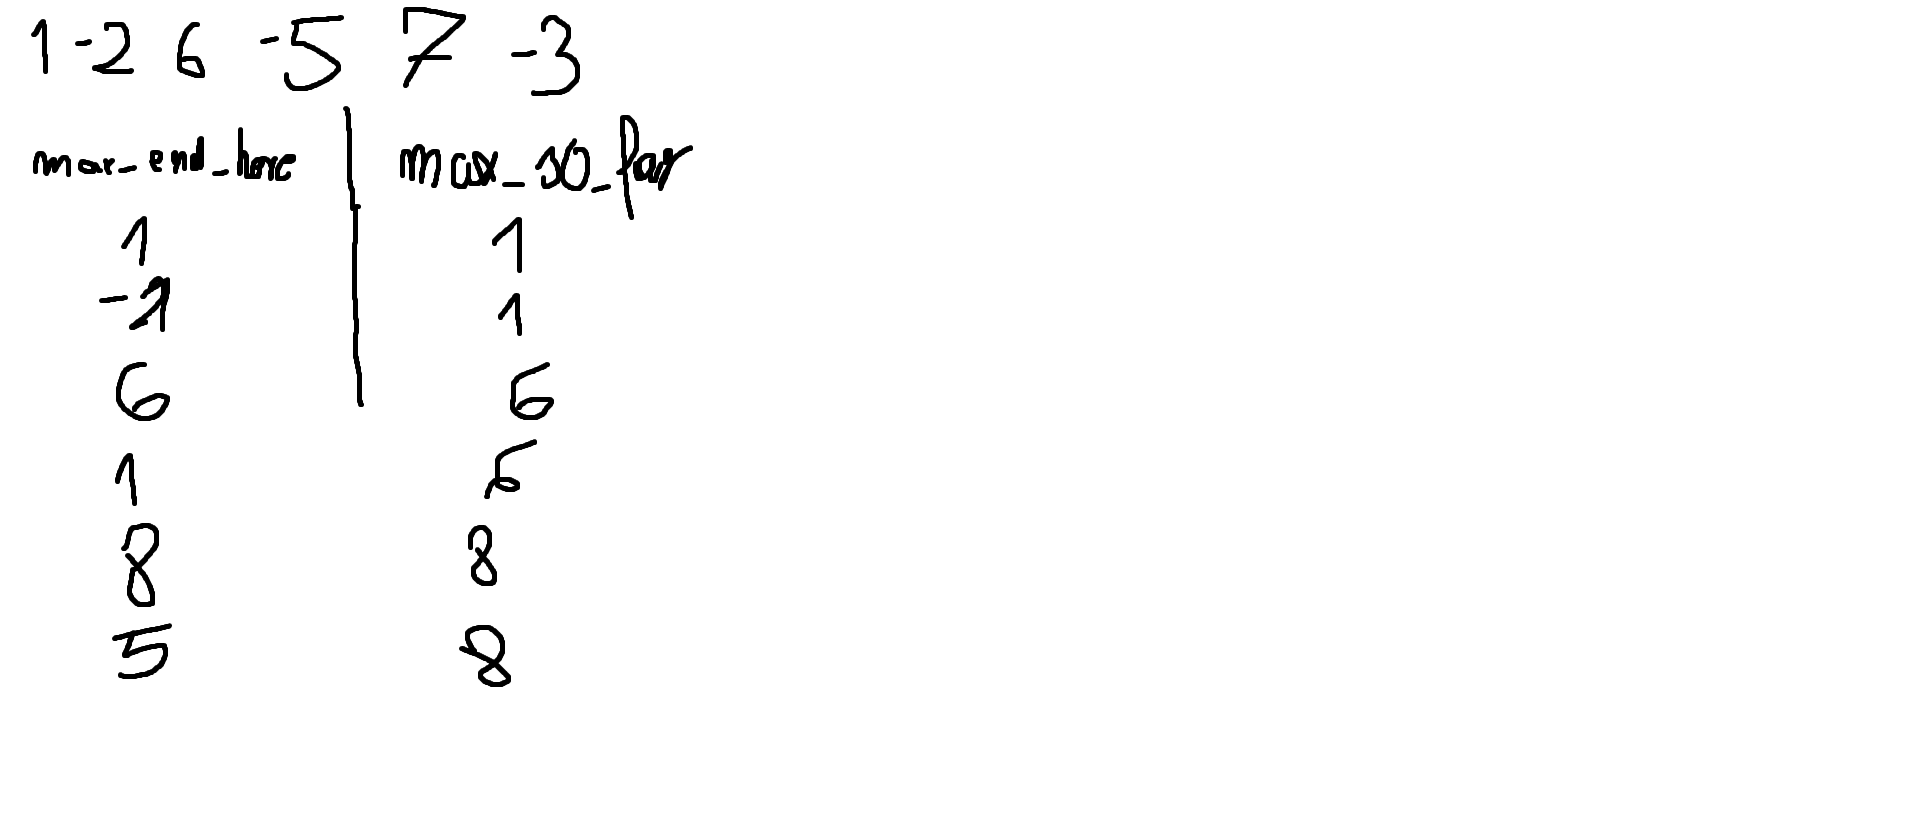 1 -2 6 -5 7 -3
max_end_here max_so_far
1 1
-1 1
6 6
1 6
8 8
5 8